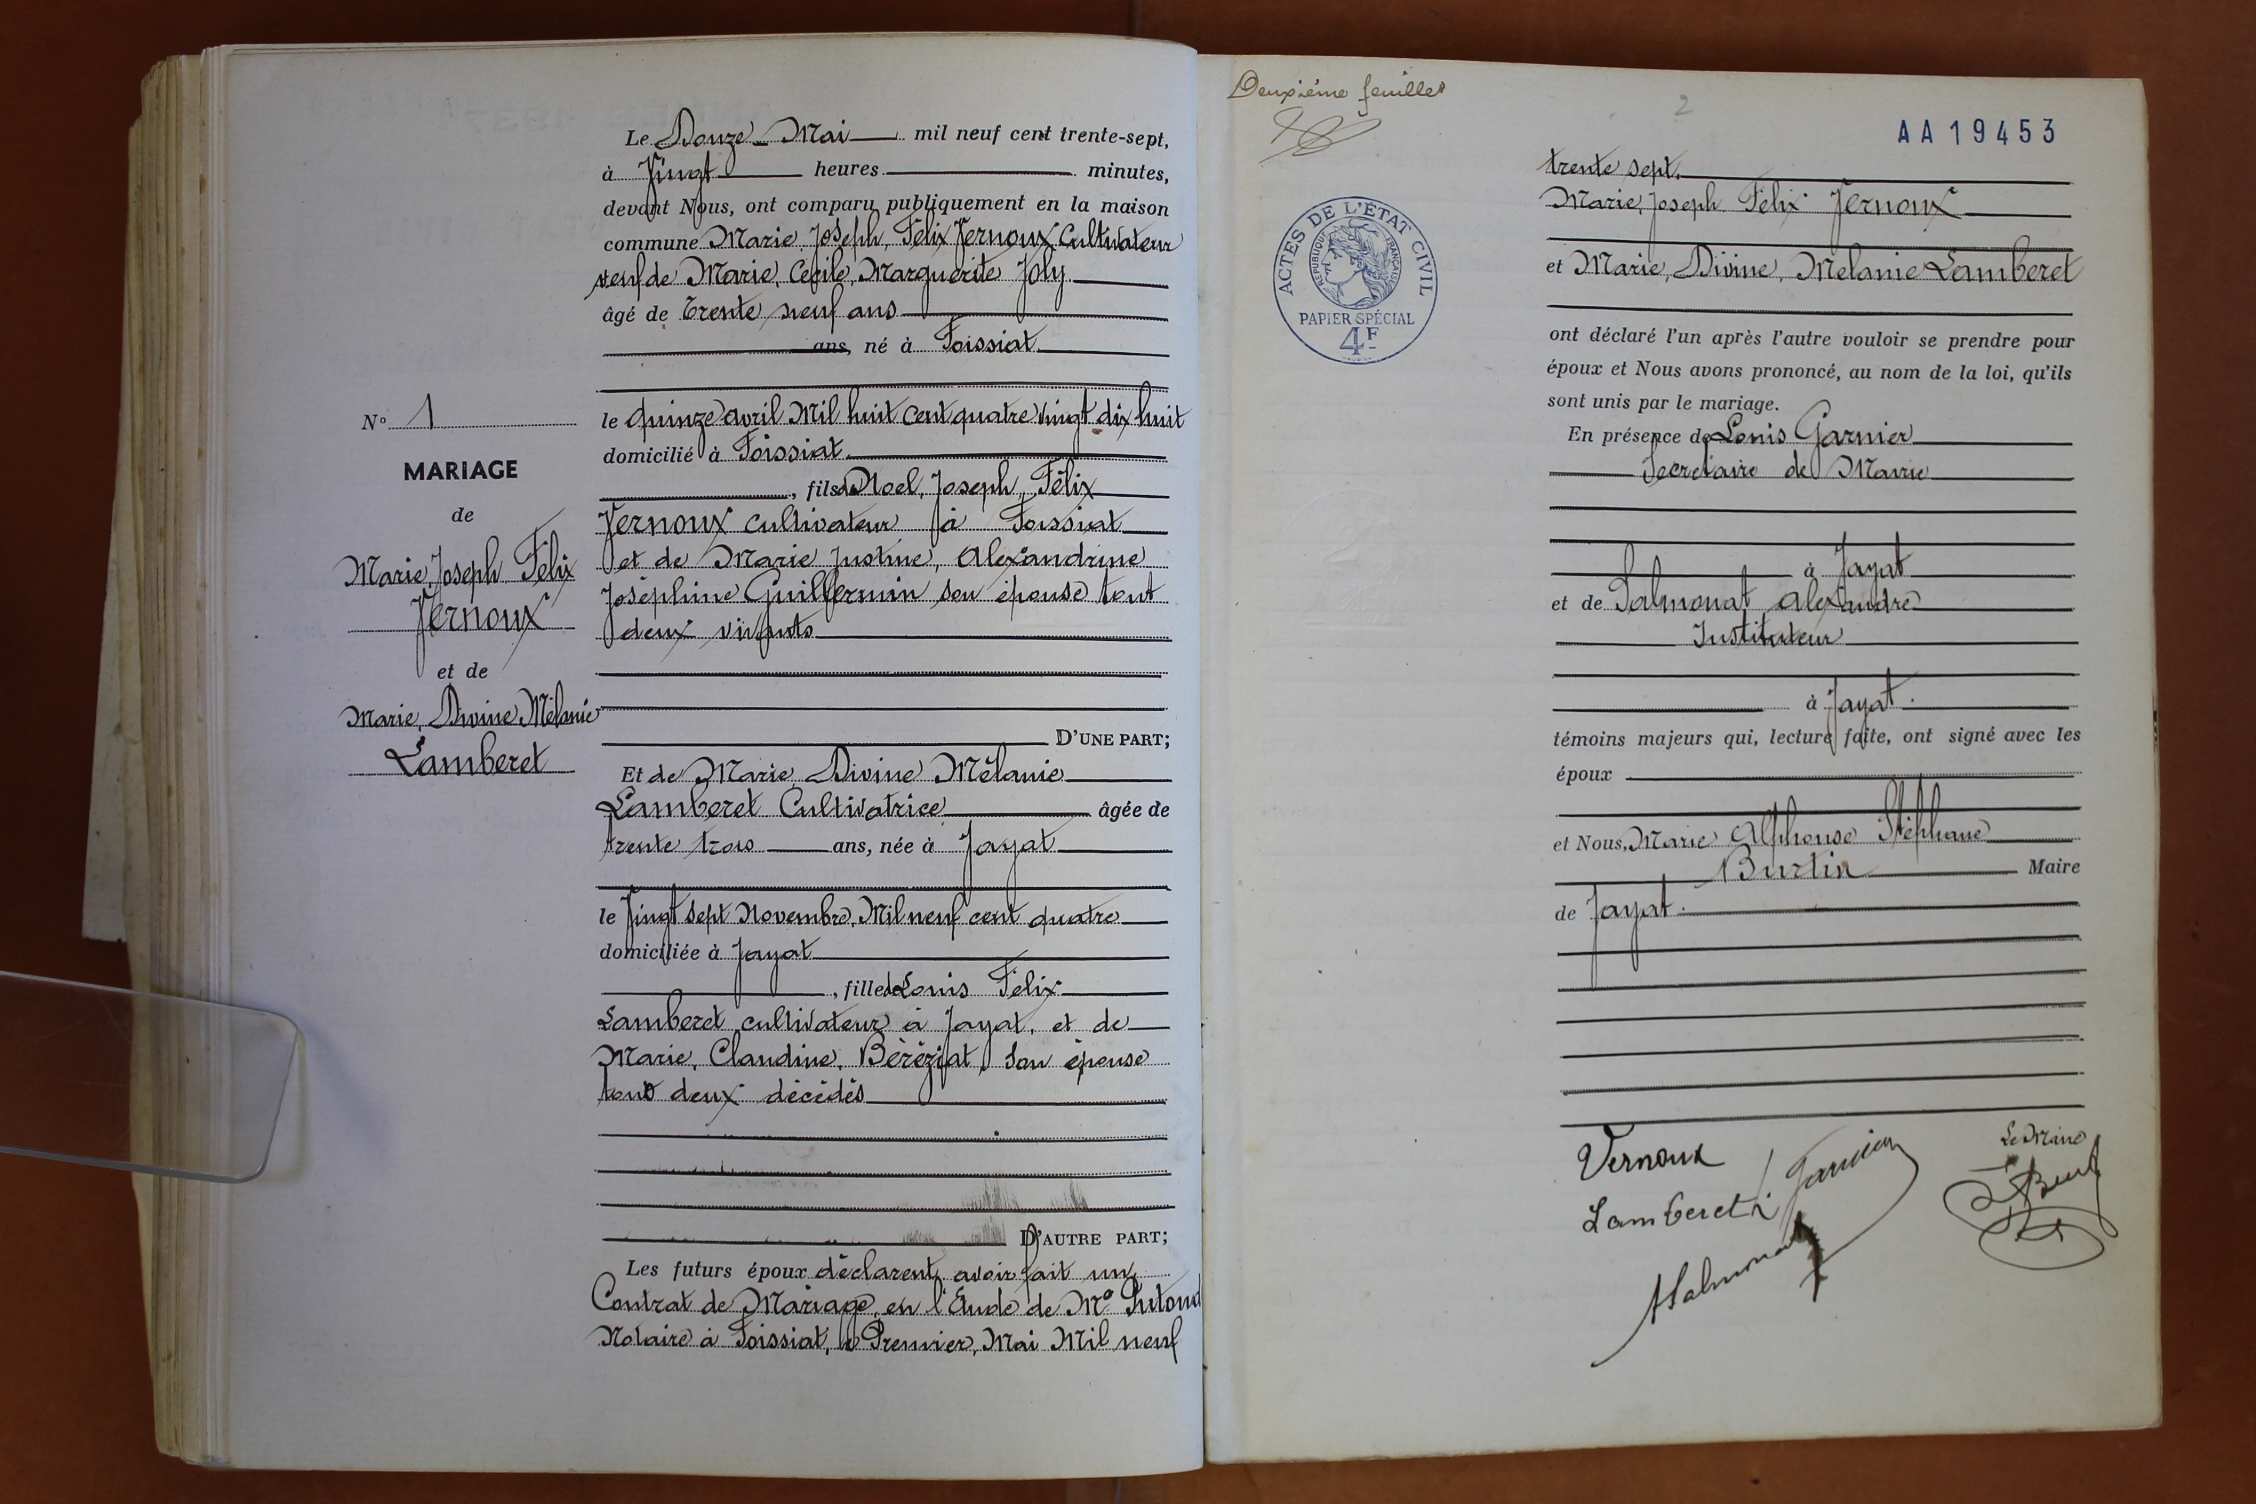 Le Douze Mai mil neuf cent trente-sept,
à Vingt heures minutes,
devant Nous, ont comparu publiquement en la maison
commune Marie, Joseph, Félix Vernoux Cultivateur
veuf de Marie, Cécile, Marguerite Joly
âgé de trente neuf ans
ans, né à Foissiat
le quinze avril Mil huit cent quatre vingt dix huit
domicilié à Foissiat
, fils de Noel, Joseph, Félix
Vernoux cultivateur à Foissiat
et de Marie Justine, Alexandrine
Joséphine Guillermin son épouse tout
deux vivants
D'UNE PART;
Et de Marie Divine Mélanie
Lamberet Cultivatrice âgée de
trente trois ans, née à Jayat
le Vingt sept Novembre, Mil neuf cent quatre
domiciliée à Jayat
, fille de Louis Félix
Lamberet cultivateur à Jayat, et de
Marie, Claudine, Béréziat son épouse
tous deux décédés
D'AUTRE PART;
Les futurs époux déclarent avoir fait un
Contrat de Mariage, en l'Étude de Me
Notaire à Foissiat, le Premier, Mai Mil neuf
N° 1
MARIAGE
de
Marie, Joseph Félix
Vernoux
et de
Marie, Divine, Mélanie
Lamberet
Deuxième feuillet
2
AA19453
ACTES DE L'ÉTAT CIVIL
RÉPUBLIQUE FRANÇAISE
PAPIER SPÉCIAL
4F
trente sept.
Marie, Joseph Félix Vernoux
et Marie, Divine, Mélanie Lamberet
ont déclaré l'un après l'autre vouloir se prendre pour
époux et Nous avons prononcé, au nom de la loi, qu'ils
sont unis par le mariage.
En présence de Louis Garnier
Secretaire de Mairie
à Jayat
et de Salmonat Alexandre
Instituteur
à Jayat.
témoins majeurs qui, lecture faite, ont signé avec les
époux
et Nous, Marie Alphonse Stéphane
Burtin Maire
de Jayat.
Vernoux
Lamberet
Garnier
ASalmonat
Le Maire